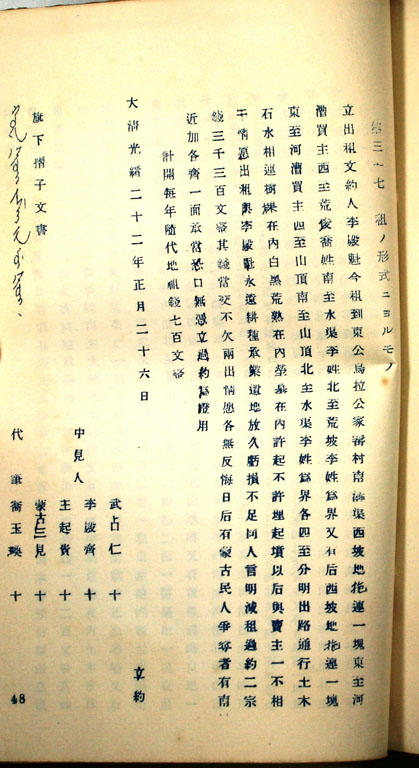 第三十七 租ノ形式ニヨルモノ
立出租文約人李殿魁今租到東公烏拉公家窑村南溝渠西坡地拖連一塊東至河
漕買主西至荒後喬姓南至水渠李姓北至荒坡李姓爲界又有后西坡地拖連一塊
東至河漕買主西至山頂南至山頂北至水渠李姓爲界各四至分明出路通行土木
石水相連樹株在內白黑荒熟在內塋墓在內許起不許埋起墳以后與賣主一不相
干情愿出租與李殿魁永遠耕種承業道地放久虧損不足同人言明減租過約二宗
錢三千三百文整其錢當交不欠兩出情愿各無反悔日后有蒙古民人爭奪者有南
近加各齊一面承當恐口無憑立過約爲證用
計開每年隨代地租錢七百文整
大淸光緖二十二年正月二十六日 立約
武占仁 十
中見人 李殿齊 十
主起貴 十
蒙古三見 十
代筆喬玉瑛 十
旗下摺子文書
48